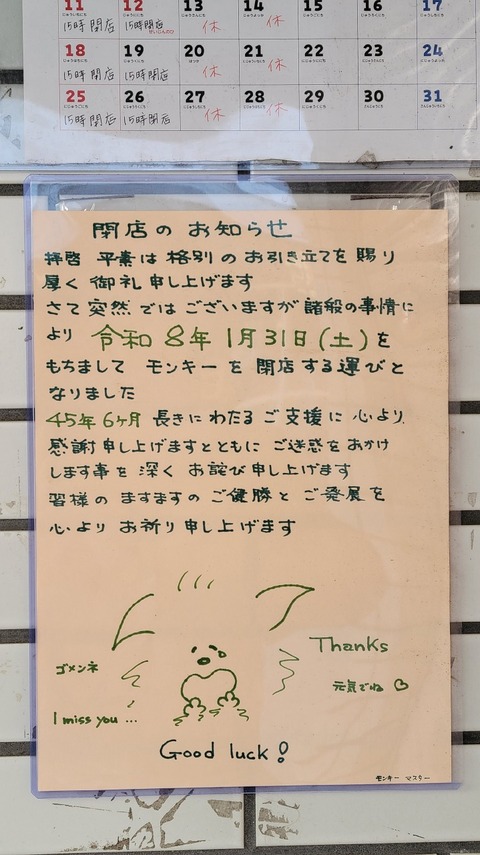 11 12 13 14 15 16 17
15時閉店 15時閉店 休 休
18 19 20 21 22 23 24
15時閉店 15時閉店 休 休
25 26 27 28 29 30 31
15時閉店 15時閉店 休 休
閉店の お知らせ
拝啓 平素は 格別の お引き立てを 賜り
厚く 御礼 申し上げます
さて 突然 では ございますが 諸般の事情に
より 令和 8年 1月31日(土)を
もちまして モンキー を 閉店 する 運びと
なりました
45年6ヶ月 長きに わたる ご支援に 心より
感謝申し上げますとともに ご迷惑を おかけ
します事を 深く お詫び申し上げます
皆様の ますますの ご健勝と ご発展を
心より お祈り申し上げます
Thanks
ゴメンネ
元気でね ♡
I miss you ...
Good luck!
モンキー マスター